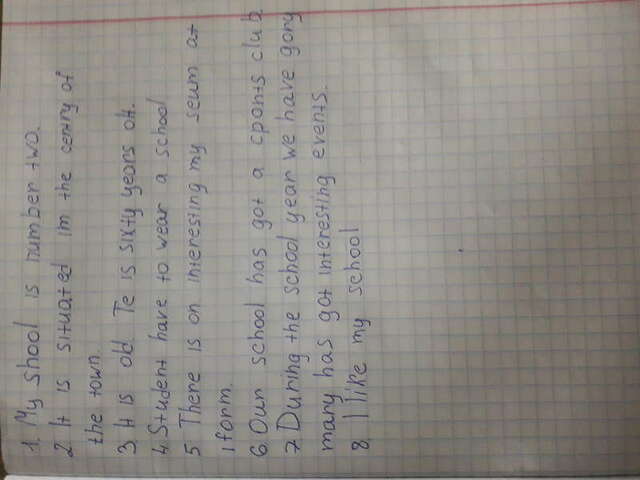 1. My shool is number two.
2 It is situated im the centry of
the town.
3. It is old. Te is sixty years old.
4. Student have to wear a school
5 There is on interesting my seum at
iform.
6. Our school has got a cponts club
7. During the school year we have gony
many has got interesting events.
8. I like my school